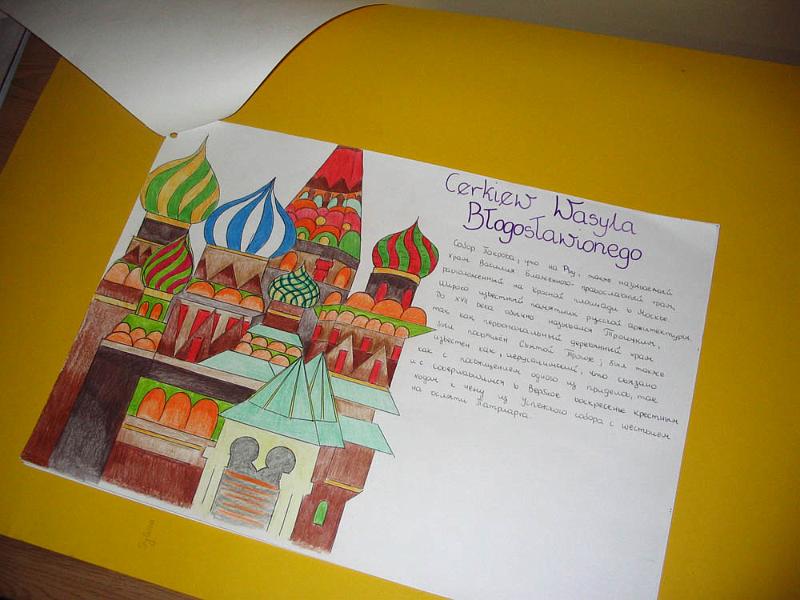 Cerkiew Wasyla
Błogosławionego
Собор Покрова, что на Рву, также называемый
храм Василия Блаженного-православный храм,
расположенный на Красной площади в Москве.
Широко известный памятник русской архитектуры.
До XVII века обычно назывался Троицким,
так как первоначальный деревянный храм
был посвящён Святой Троице; был также
известен как "иерусалимский", что связано
как с посвящением одного из приделов, так
и с совершавшимся в Вербное воскресенье крестным
ходом к нему из Успенского собора с шествием
на осляти Патриарха.